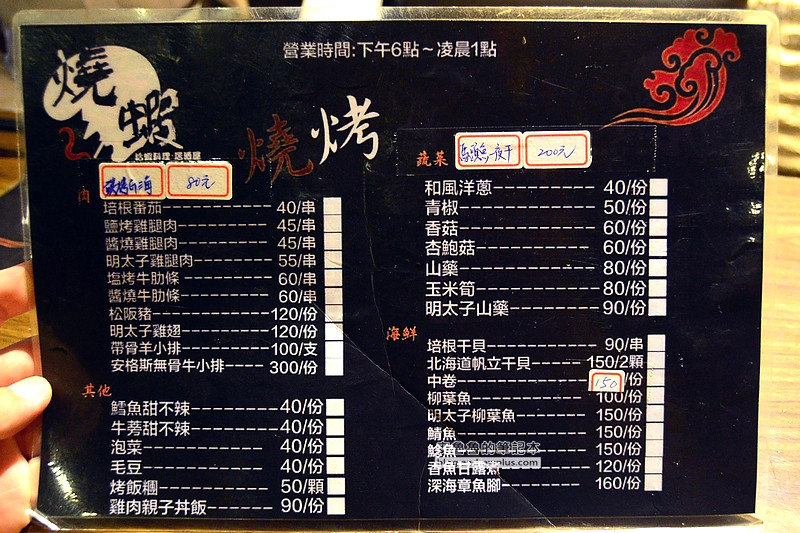 營業時間:下午6點～凌晨1點
燒
蝦
燒烤
肉
80元
培根番茄----------40/串
鹽烤雞腿肉----------45/串
醬燒雞腿肉----------45/串
明太子雞腿肉----------55/串
塩烤牛肋條----------60/串
醬燒牛肋條----------60/串
松阪豬----------120/份
明太子雞翅----------120/份
帶骨羊小排----------100/支
安格斯無骨牛小排-----300/份
其他
鱈魚甜不辣----------40/份
牛蒡甜不辣----------40/份
泡菜----------40/份
毛豆----------40/份
烤飯糰----------50/顆
雞肉親子丼飯----------90/份
蔬菜
200元
和風洋蔥----------40/份
青椒----------50/份
香菇----------60/份
杏鮑菇----------60/份
山藥----------80/份
玉米筍----------80/份
明太子山藥----------90/份
海鮮
培根干貝----------90/串
北海道帆立干貝-----150/2顆
中卷----------150/份
柳葉魚----------100/份
明太子柳葉魚----------150/份
鯖魚----------150/份
鯵魚----------150/份
香魚甘露煮----------120/份
深海章魚腳----------160/份
魯的筆記本